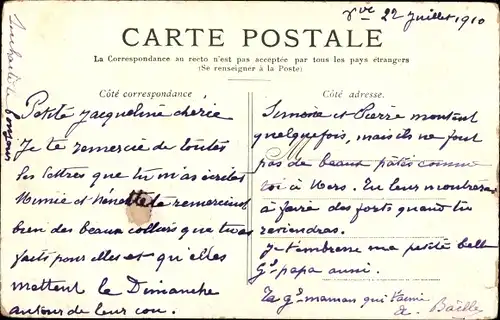 Yve 22 juillet 1910
CARTE POSTALE
La Correspondance au recto n'est pas acceptée par tous les pays étrangers
(Se renseigner à la Poste)
Côté correspondance
Petite Jacqueline chérie
Je te remercie de toutes
les lettres que tu m'as écrites
Mimie et Nénette te remercient
bien des beaux colliers que tu as
faits pour elles et qu'elles
mettent le Dimanche
autour de leur cou.
Côté adresse.
Simone et Pierre montent
quelquefois, mais ils ne font
pas de beaux patés comme
toi à Mers. Tu leur montreras
à faire des forts quand tu
reviendras.
Je t'embrasse ma petite belle
Gd papa aussi.
Ta gd maman qui t'aime
Baille
bonjour